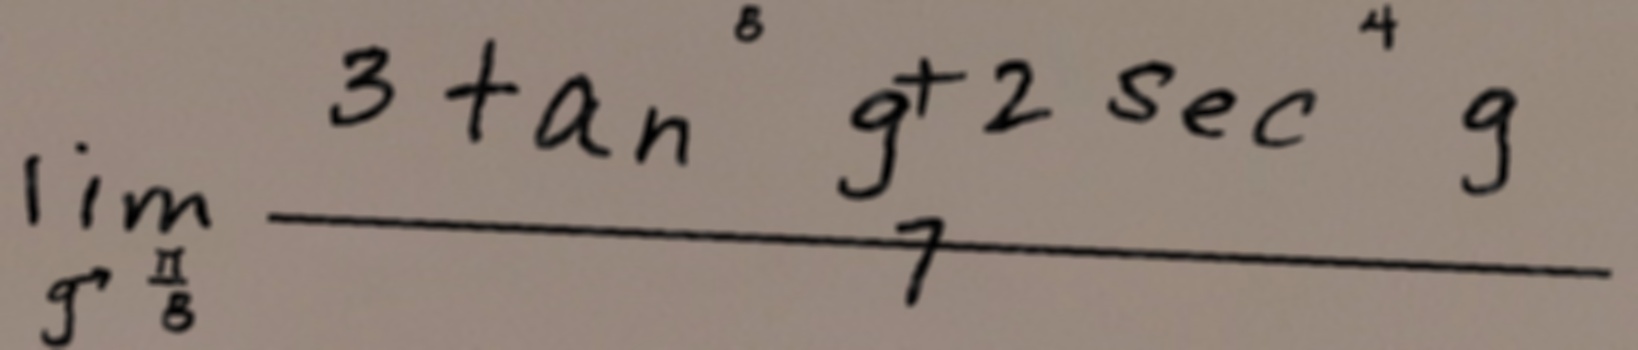 \lim_{g \to \frac{\pi}{8}} \frac{3 \tan^{8} g + 2 \sec^{4} g}{7}